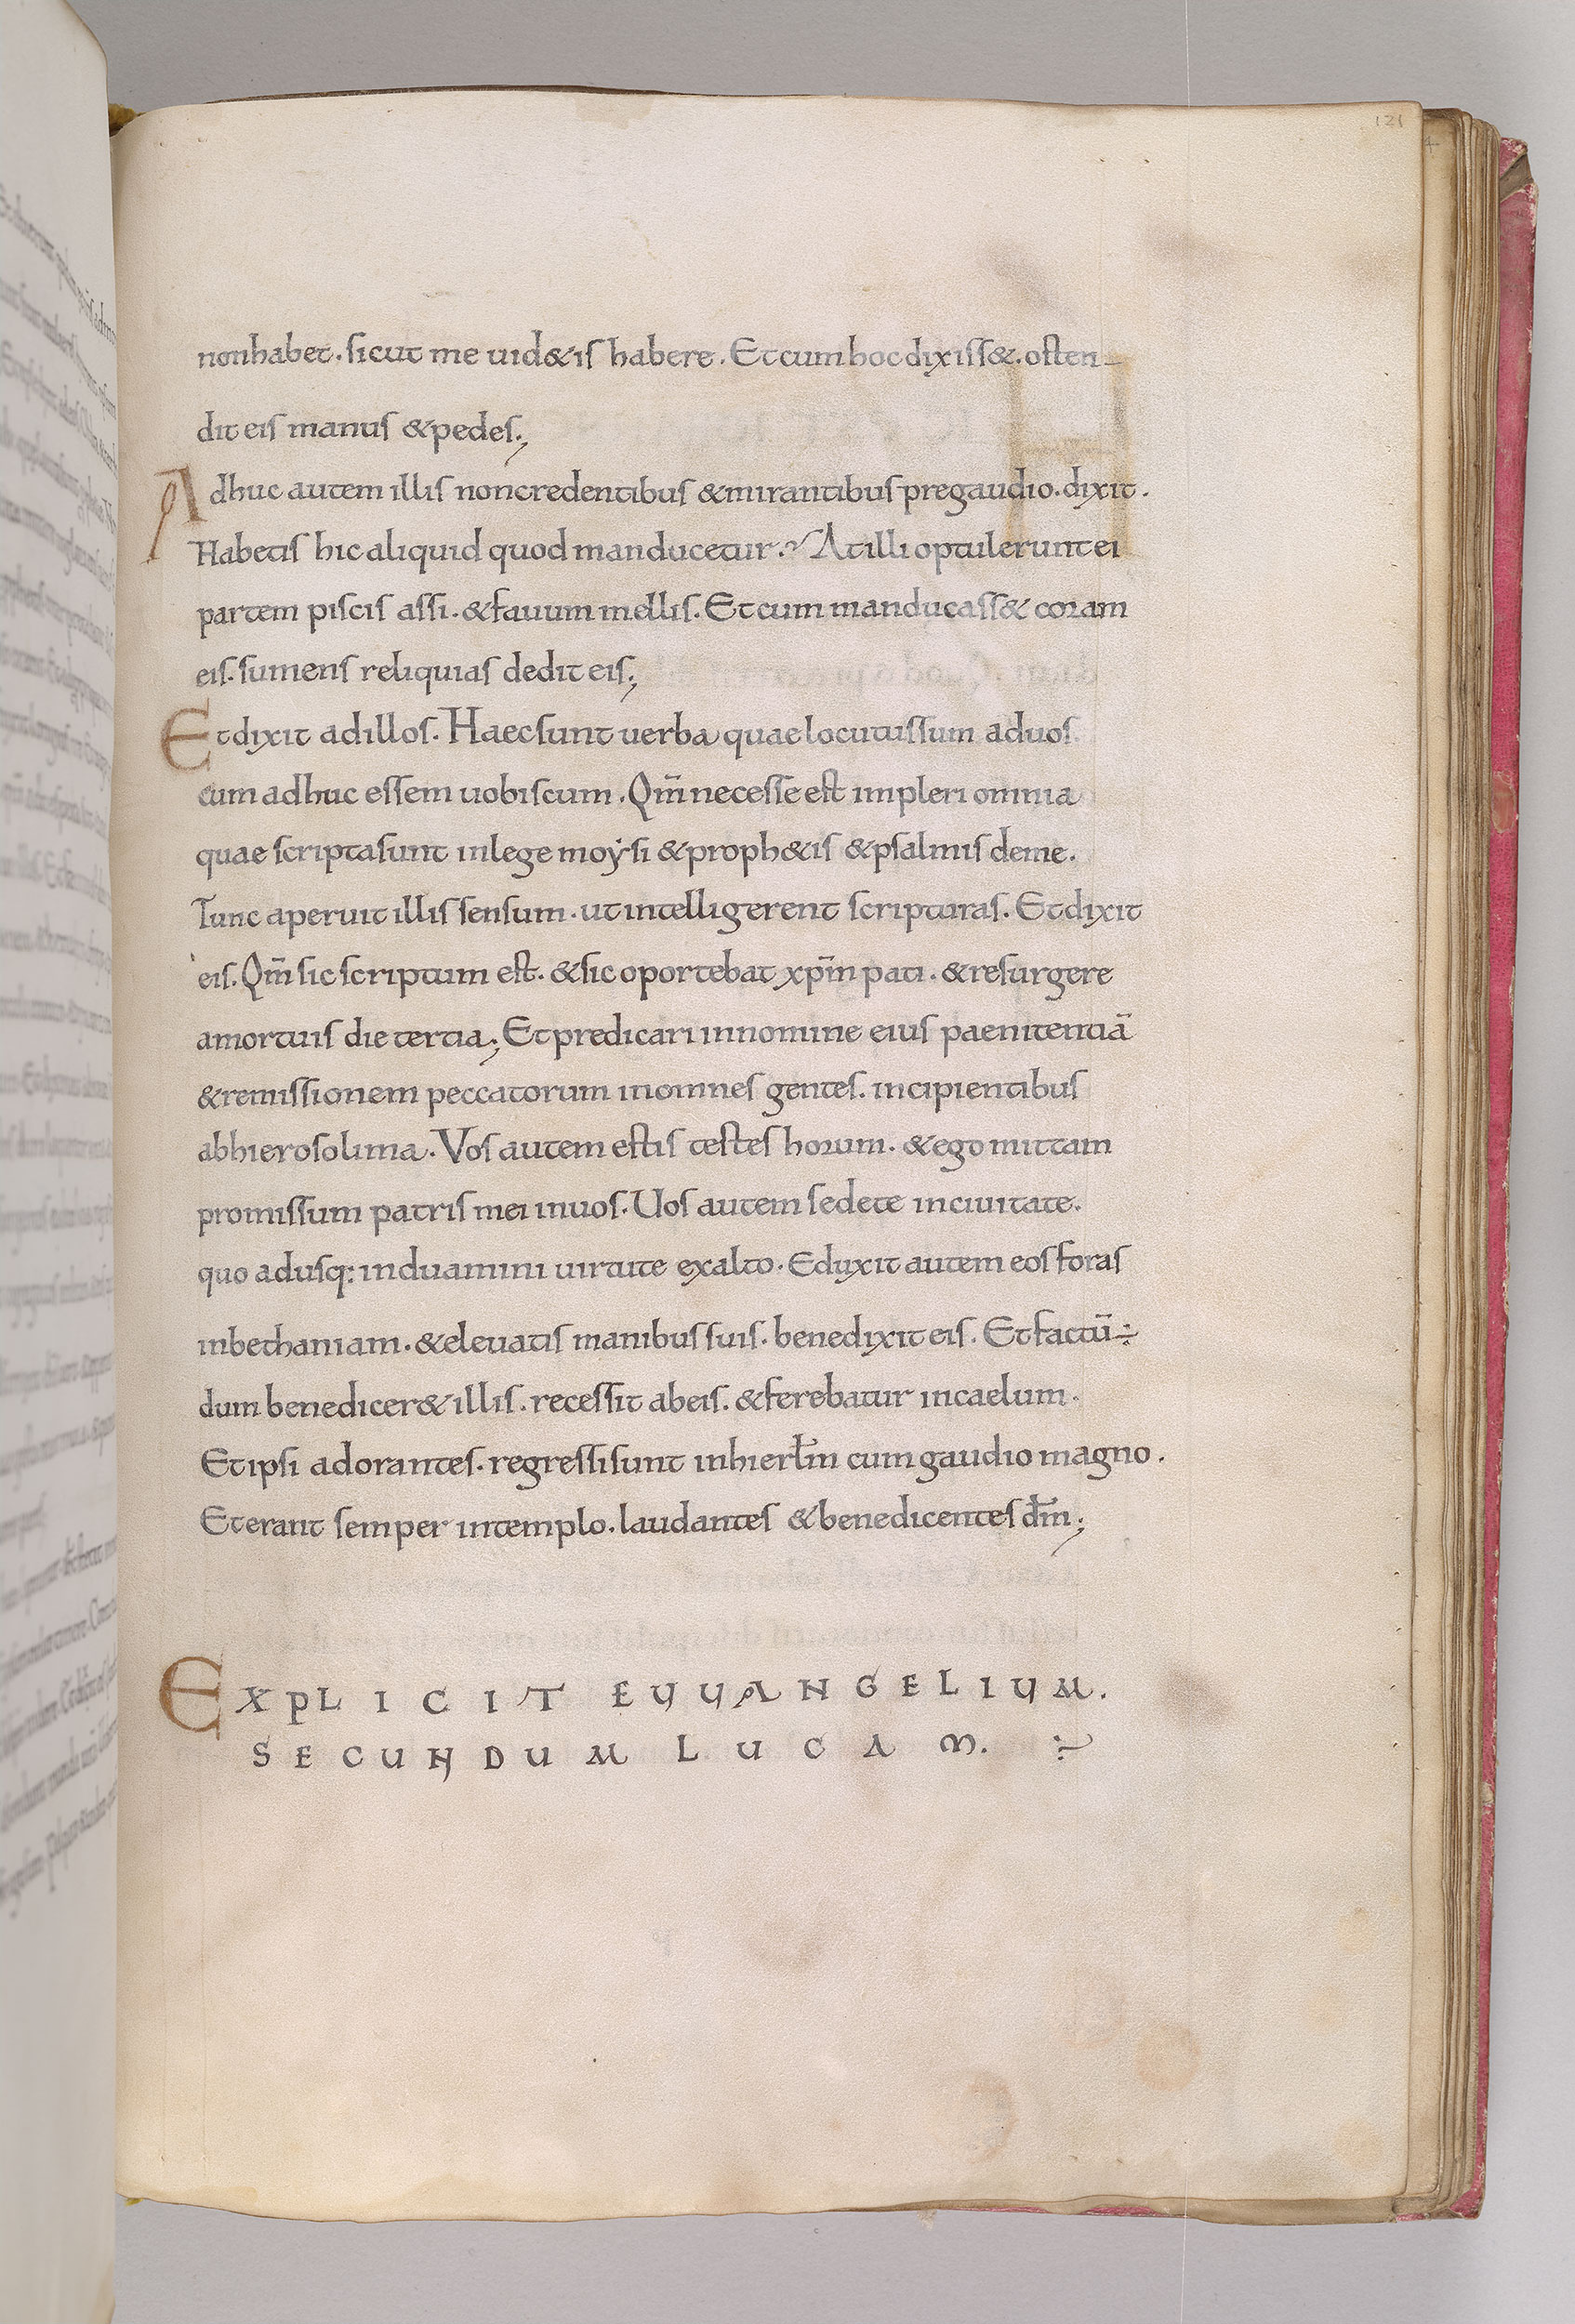 121
nonhabet. sicut me uid&is habere. Et cum hoc dixiss&. osten-
dit eis manus &pedes;
Adhuc autem illis noncredentibus &mirantibus pregaudio. dixit.
Habetis hic aliquid quod manducetur? At illi optulerunt ei
partem piscis assi. &fauum mellis. Et cum manducass& coram
eis. sumens reliquias dedit eis;
Et dixit adillos. Haec sunt uerba quae locutus sum aduos
cum adhuc essem uobiscum. Qm̄ necesse est impleri omnia
quae scripta sunt inlege moẏsi &proph&is &psalmis deme.
Tunc aperuit illis sensum. ut intelligerent scripturas. Et dixit
eis. Qm̄ sic scriptum est. &sic oportebat xp̄m pati. &resurgere
amortuis die tertia; Et predicari innomine eius paenitentiā
&remissionem peccatorum inomnes gentes. incipientibus
abhierosolima. Vos autem estis testes horum. &ego mittam
promissum patris mei inuos. Uos autem sedete inciuitate.
quo adusq: induamini uirtute exalto. Eduxit autem eos foras
inbethaniam. &eleuatis manibus suis. benedixit eis. Et factū÷
dum benedicer& illis. recessit abeis. &ferebatur incaelum.
Et ipsi adorantes. regressi sunt inhierl̄m cum gaudio magno.
Et erant semper intemplo. laudantes &benedicentes dm̄;
EXPLICIT EUUANGELIUM.
SECUNDUM LUCAM.